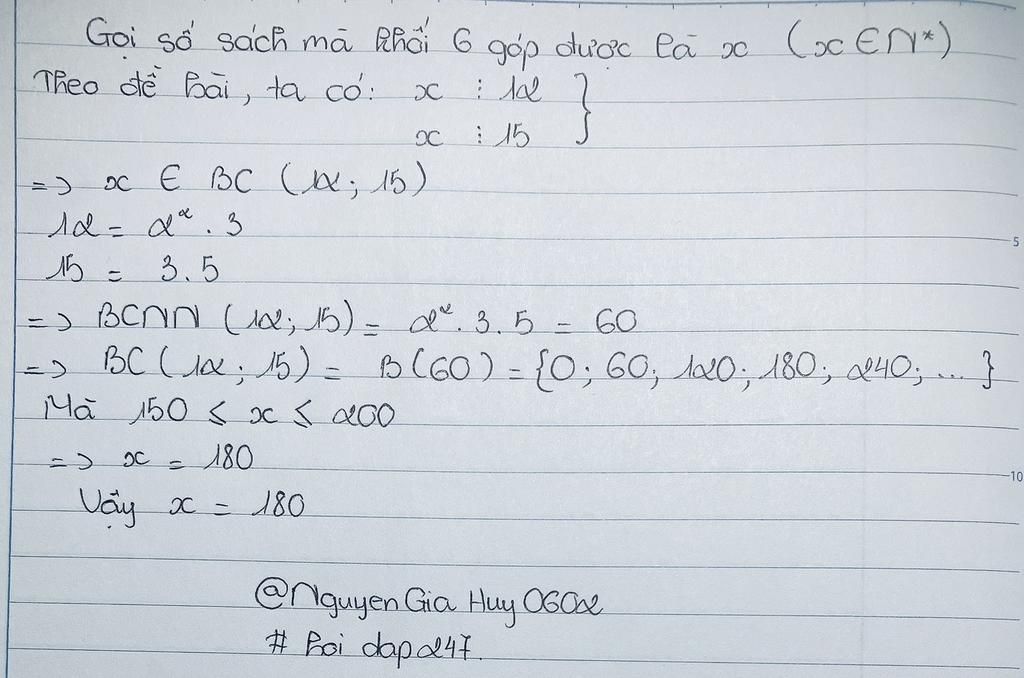 Gọi số sách mà khối 6 góp được là x (x ∈ N*)
Theo đề bài, ta có: x ⋮ 12 }
x ⋮ 15
=> x ∈ BC (12; 15)
12 = 2² . 3
15 = 3.5
=> BCNN (12; 15) = 2² . 3 . 5 = 60
=> BC (12; 15) = B(60) = {0; 60; 120; 180; 240; ... }
Mà 150 ≤ x ≤ 200
=> x = 180
Vậy x = 180
@NguyenGia Huy0602
# hoi dap247.
5
10